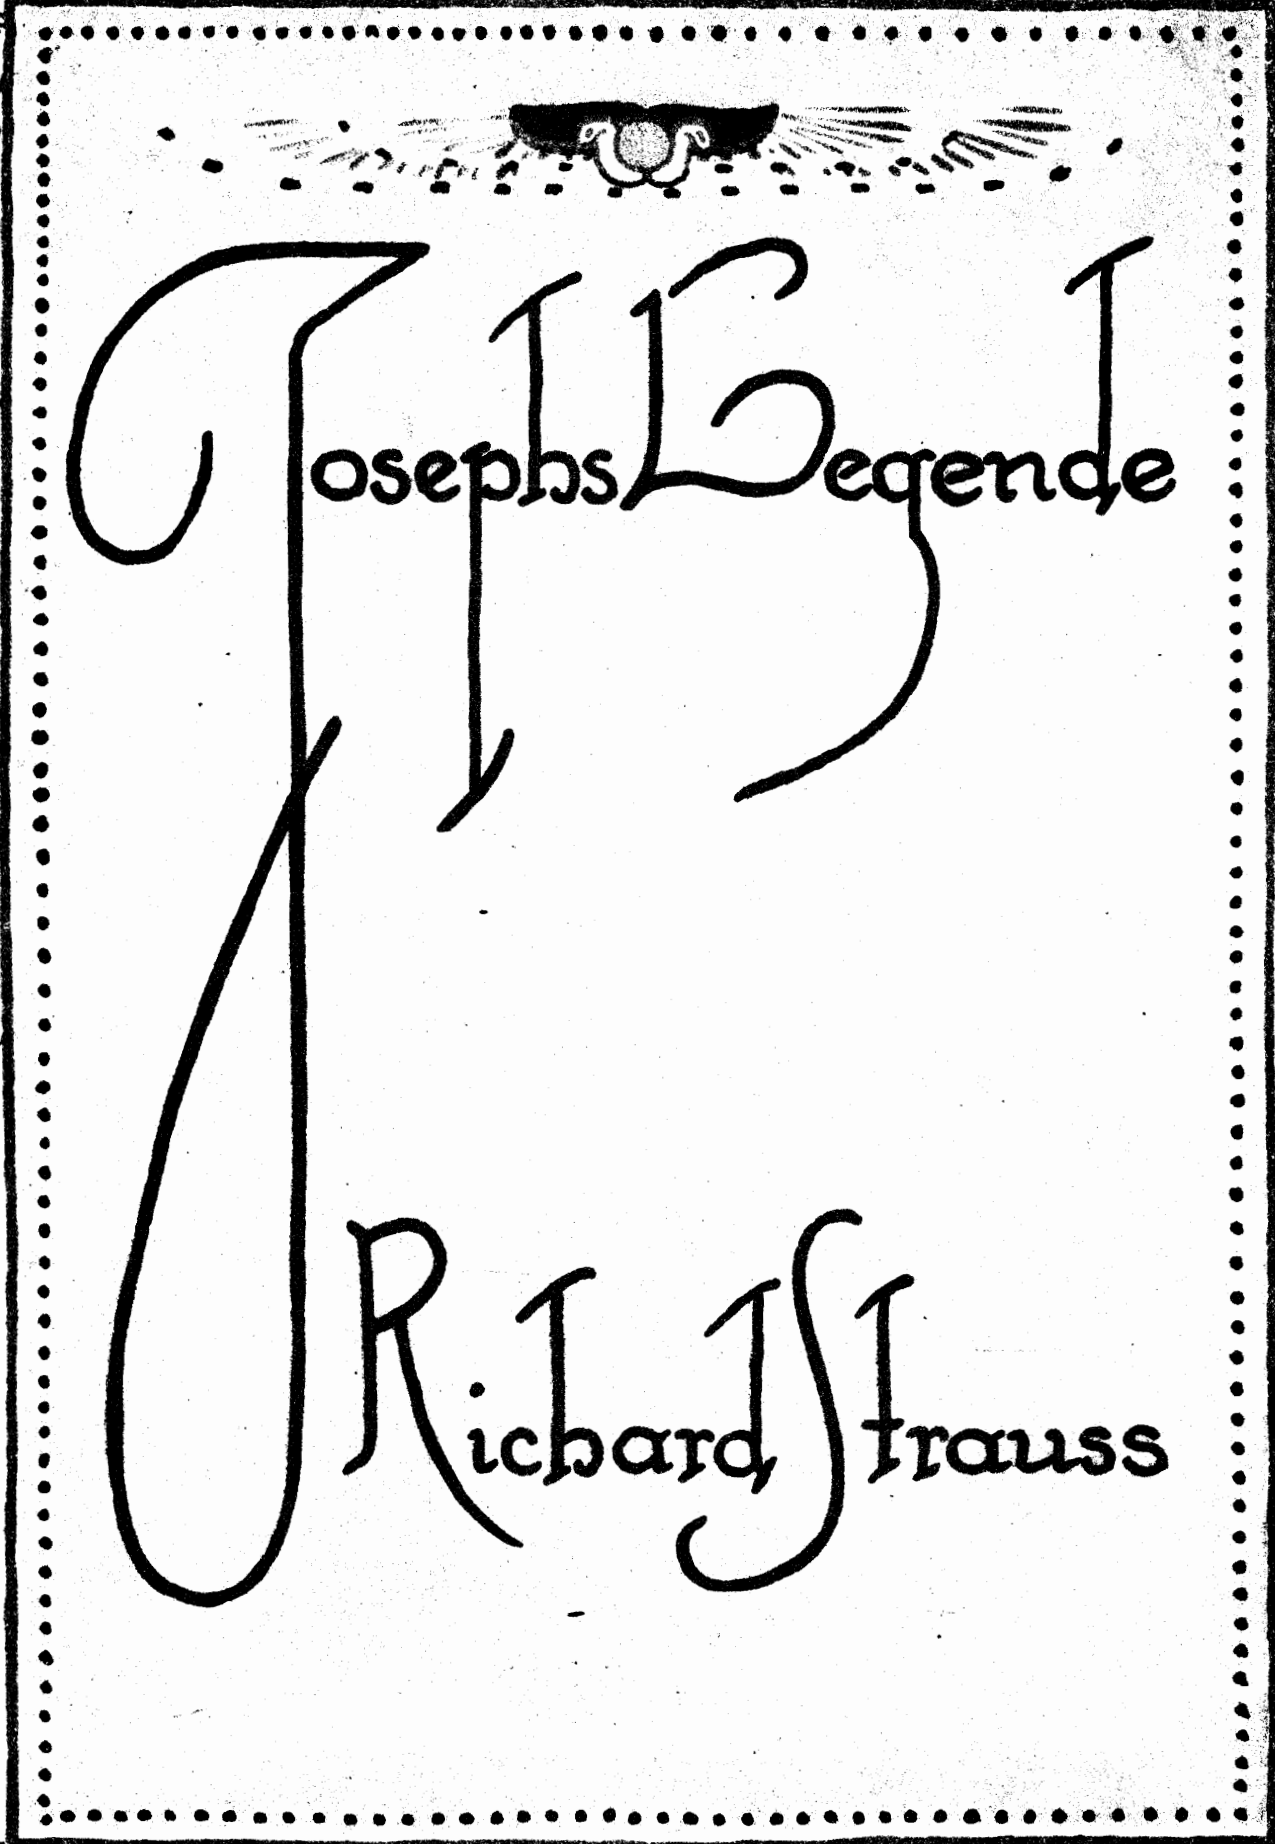 Josephs Legende
Richard Strauss